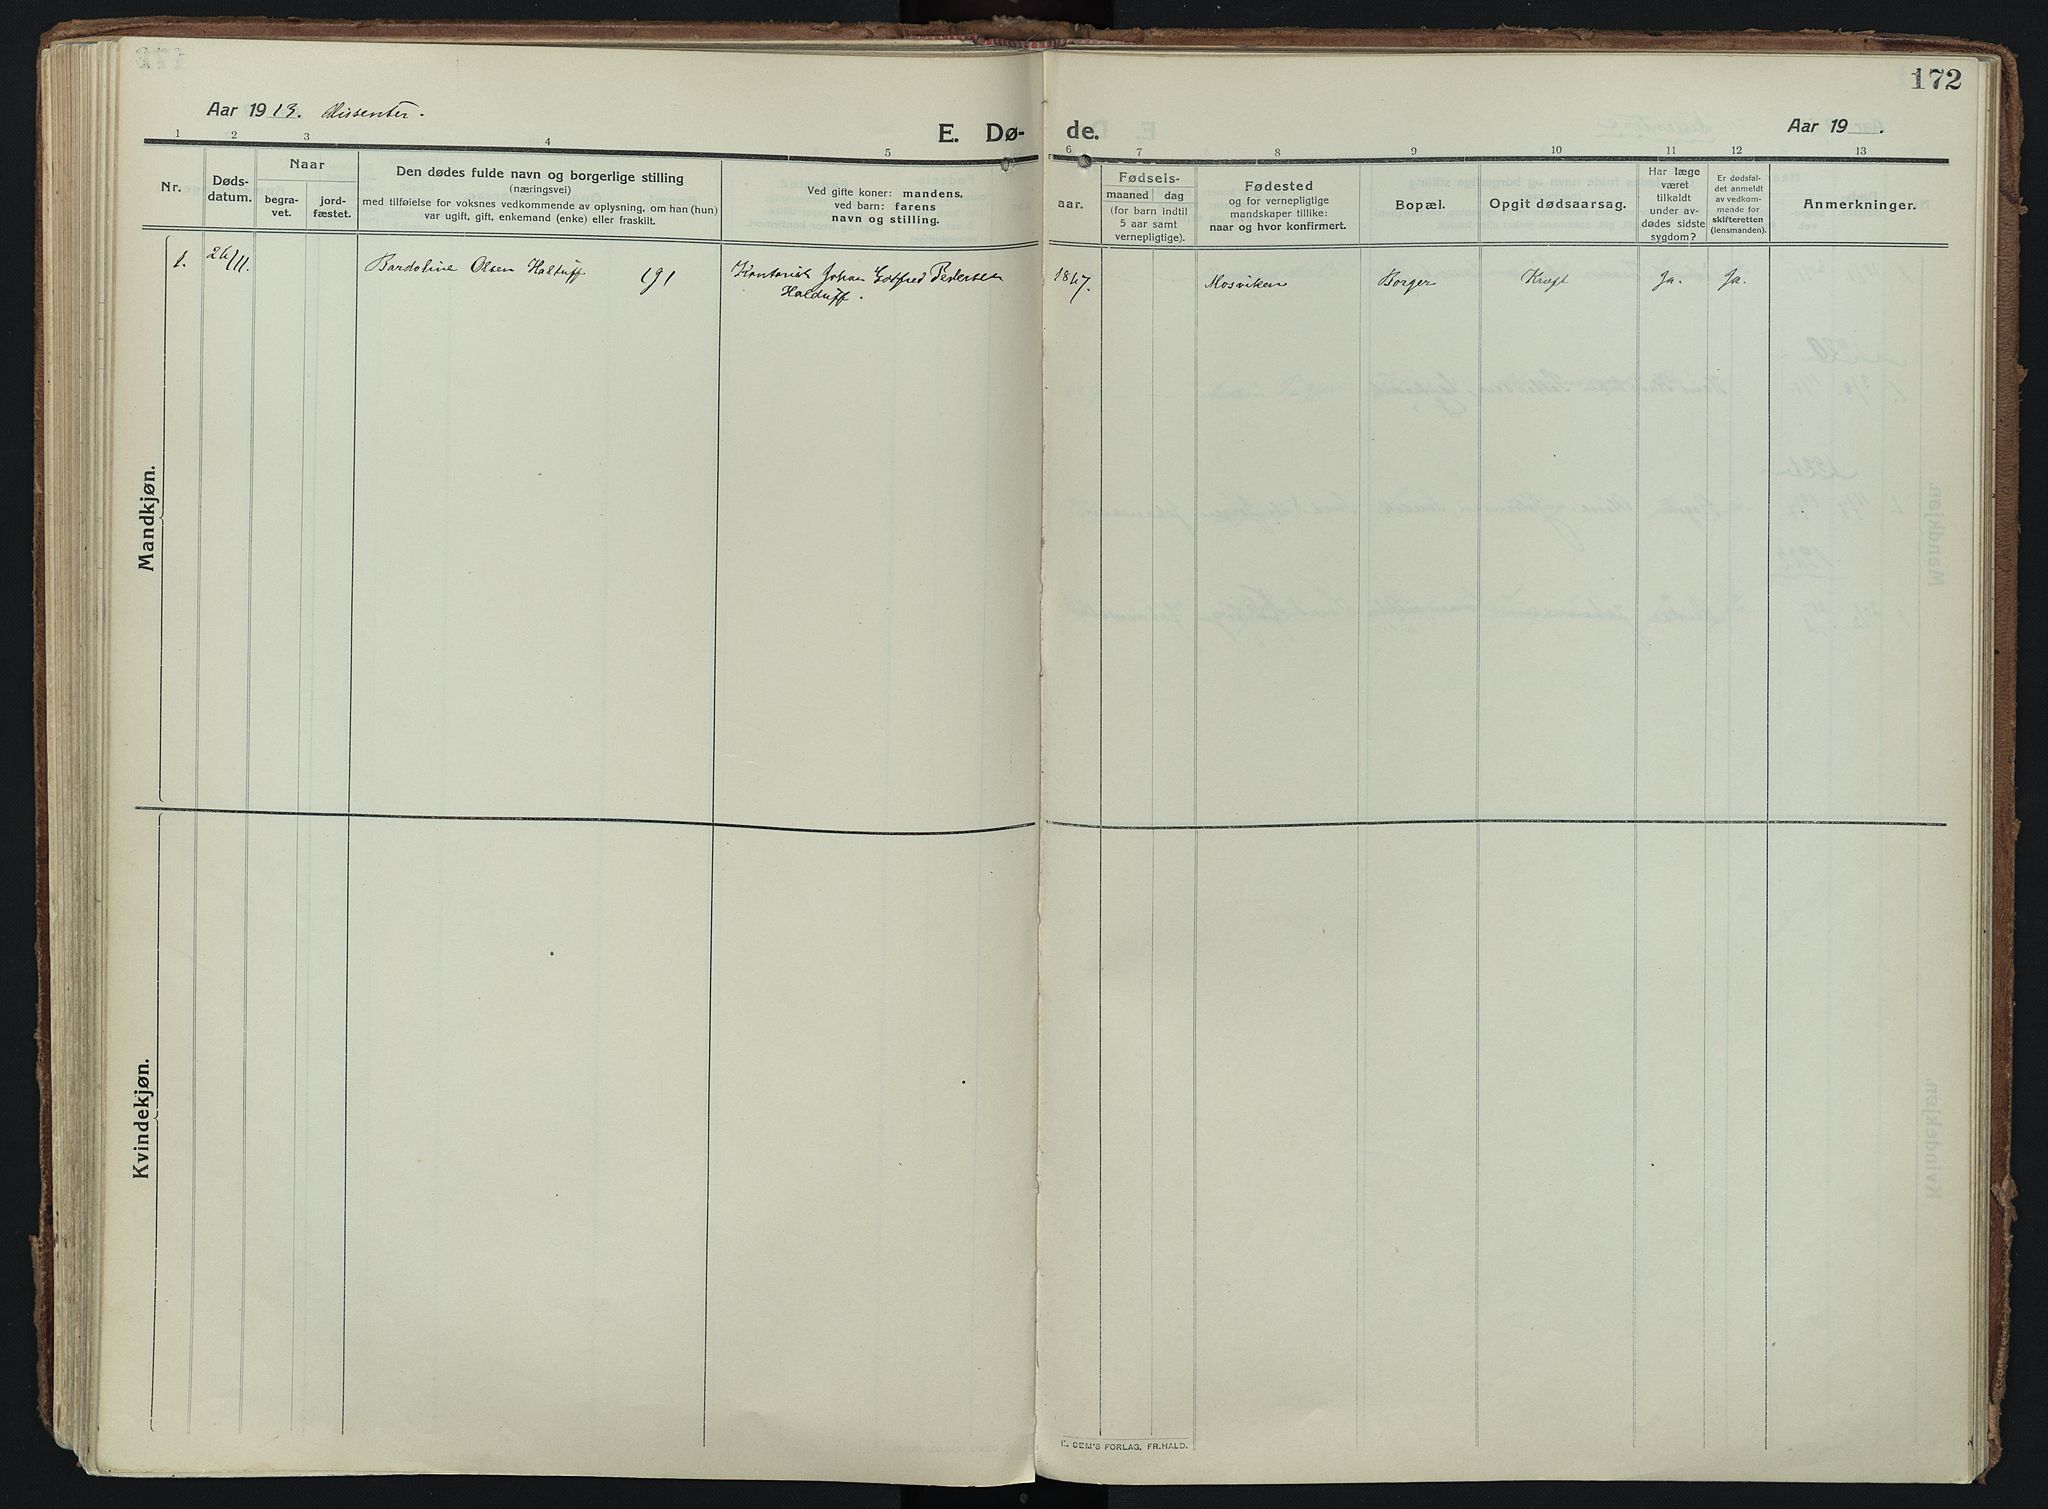 172
Aar 1913. Dissenter.
Aar 19 .
E. Dø- de.
1 2 3 4 5 6 7 8 9 10 11 12 13
Nr.
Døds-
datum.
Naar
begra-
vet.
jord-
fæstet.
Den dødes fulde navn og borgerlige stilling
(næringsvei)
med tilføielse for voksnes vedkommende av oplysning, om han (hun)
var ugift, gift, enkemand (enke) eller fraskilt.
Ved gifte koner: mandens,
ved barn: farens
navn og stilling.
aar.
Fødsels-
maaned dag
(for barn indtil
5 aar samt
vernepligtige).
Fødested
og for vernepligtige
mandskaper tillike:
naar og hvor konfirmert.
Bopæl.
Opgit dødsaarsag.
Har læge
været
tilkaldt
under av-
dødes sidste
sygdom?
Er dødsfal-
det anmeldt
av vedkom-
mende for
skifteretten
(lensmanden).
Anmerkninger.
1. 26/11. Bardoline Olsen Halduff Kontorist Johan Gotfred Pedersen 1867. Mosviken Borger Kræft Ja. Ja.
Halduff.
Mandkjøn.
Kvindekjøn.
E. SEM'S FORLAG, FR.HALD.